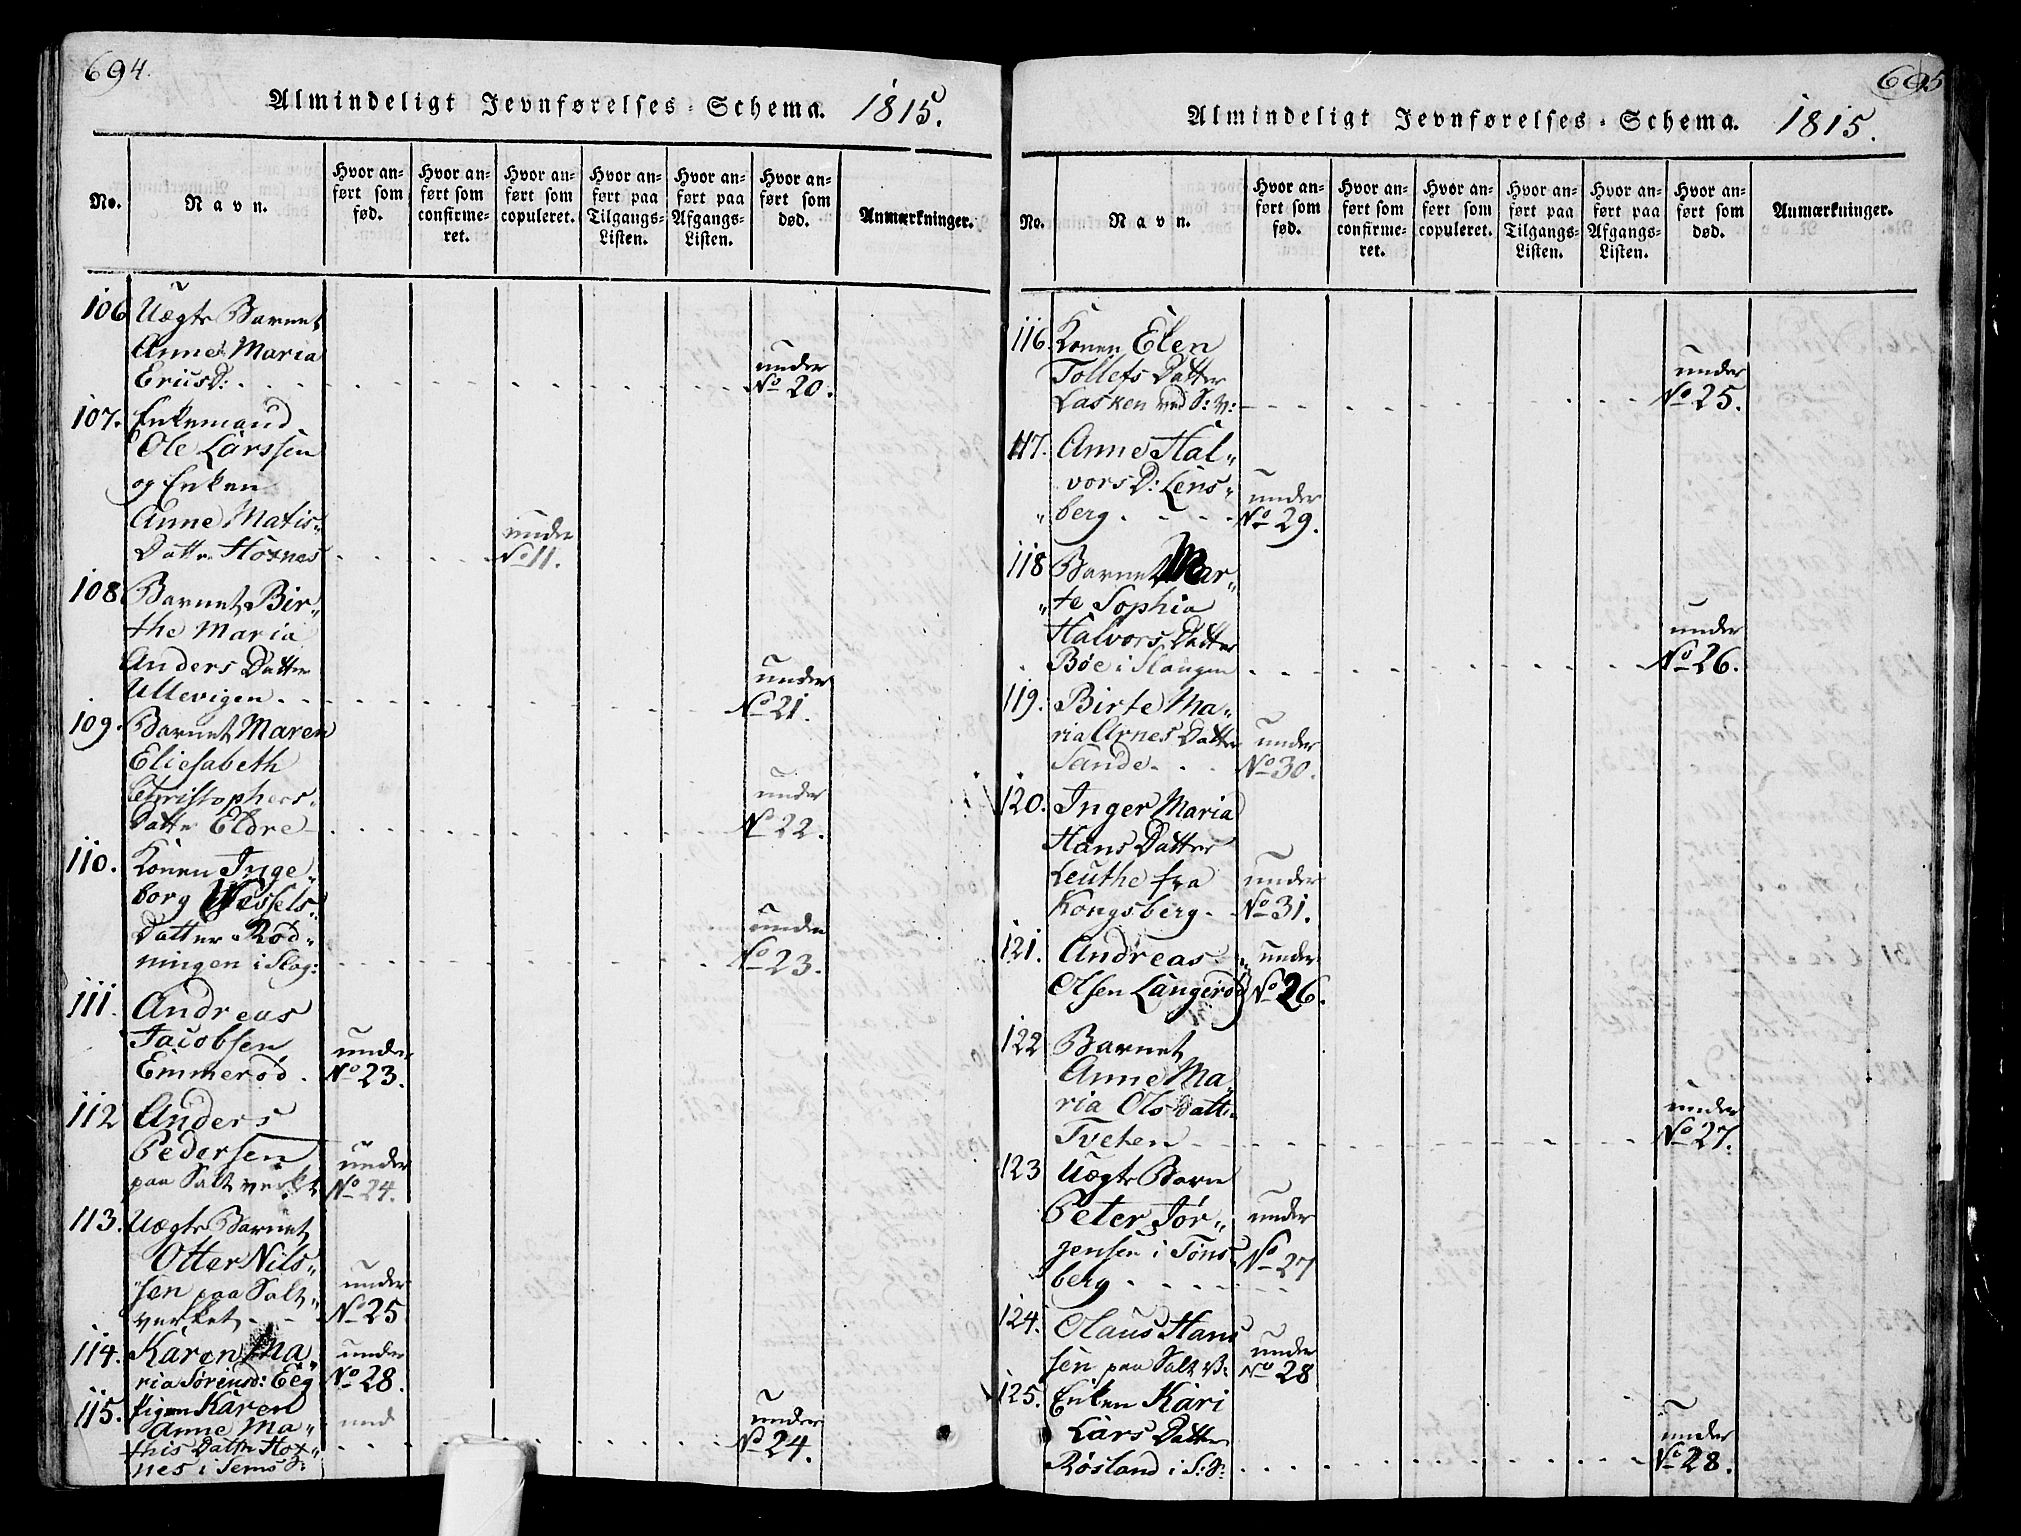 694.
Almindeligt Jevnførelses-Schema. 1815.
No.
Navn.
Hvor an-
ført som
fød.
Hvor an-
ført som
confirme-
ret.
Hvor an-
ført som
copuleret.
Hvor an-
ført paa
Tilgangs-
Listen.
Hvor an-
ført paa
Afgangs-
Listen.
Hvor an-
ført som
død.
Anmærkninger.
106 Uægte Barnet
Anne Maria
EricsD: under No 20.
107. Enkemand
Ole Larssen
og Enken
Anne Matis-
Datter Hoxnes under No 11.
108 Barnet Bir-
the Maria
Anders Datter
Ullevigen under No 21.
109. Barnet Maren
Eliesabeth
Christophers-
Datter Eldre under No 22.
110. Konen Inge-
borg Wessels-
Datter Rød-
ningen i Slag: under No 23.
111. Andreas
Jacobsen
Emmerød. under No 23.
112 Anders
Pedersen
paa Saltverket under No 24.
113. Uægte Barnet
Otter Nils-
sen paa Salt-
verket under No 25
114. Karen Ma-
ria Sørensd: Eeg under No 28.
115. Pigen Karen und
Anne Ma-
this Datter Hox-
nes i Sems S: under No 24.
695
Almindeligt Jevnførelses-Schema. 1815.
No.
Navn.
Hvor an-
ført som
fød.
Hvor an-
ført som
confirme-
ret.
Hvor an-
ført som
copuleret.
Hvor an-
ført paa
Tilgangs-
Listen.
Hvor an-
ført paa
Afgangs-
Listen.
Hvor an-
ført som
død.
Anmærkninger.
116. Konen Elen
Tollefs Datter
Lasken ved S: V: under No 25.
117. Anne Hal-
vors D: Lens-
berg. under No 29.
118 Barnet Mar-
te Sophia
Halvors Datter
Bøe i Slaugen under No 26.
119. Birte Ma-
ria Arnes Datter
Sande. under No 30.
120. Inger Maria
Hans Datter
Leuthe fra
Kongsberg. under No 31.
121. Andreas
Olsen Langerød under No 26.
122 Barnet
Anne Ma-
ria Ols datter
Tveten under No 27.
123 Uægte Barn
Peter Jør-
gensen i Tøns-
berg under No 27
124. Olaus Han-
sen paa Salt V: under No 28
125. Enken Kari
Lars Datter
Røsland i S: S: under No 28.